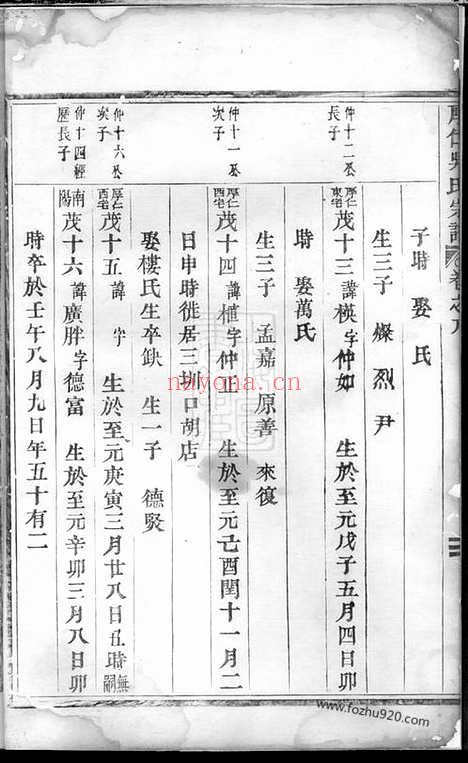 厚仁吳氏宗譜 卷之八
子時 娶 氏
生三子 燦 烈 尹
仲十二公長子
厚仁東宅 茂十三 諱模 字仲如 生於至元戊子五月四日卯
時 娶萬氏
生三子 孟嘉 原善 來復
仲十一公次子
厚仁西宅 茂十四 諱植 字仲正 生於至元己酉閏十一月二
日申時徙居三圳口胡店
娶樓氏生卒缺 生一子 德賢
仲十六公次子
厚仁西宅 茂十五 諱 字 生於至元庚寅三月廿八日丑時無嗣
仲十四經歷長子
南陽 茂十六 諱廣胖 字德富 生於至元辛卯三月八日卯
時卒於壬午八月九日年五十有二
nayona.cn
www.fozhu920.com